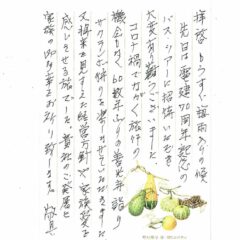 拝啓 もうすぐ梅雨入りの候
先日は 重建70周年記念の
バスツアーに招待いただき
大変有り難うございました。
コロナ禍でのなかなか旅行の
機会もなく、60数年ぶりの善光寺詣り
サクランボ狩りを楽しませていただきました
又将来を見すえた経営方針や家族愛を
感じさせる旅でした。貴社のご発展と
家族の御多幸をお祈り致します。 敬具